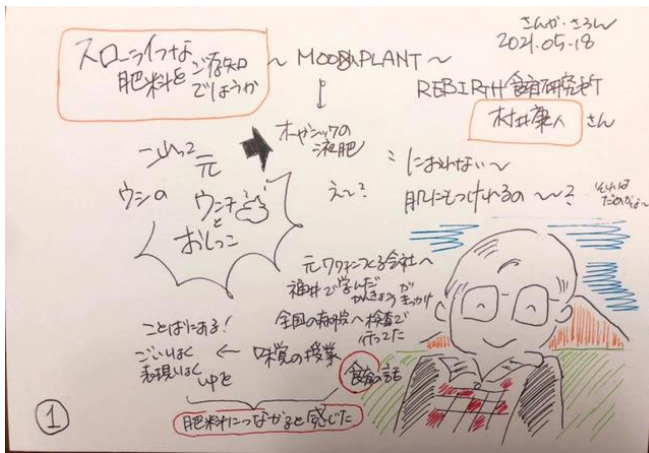 さんか・さろん
2021.05.18
スローライフな
肥料をご存知
でしょうか
〜 MOO PLANT 〜
REBIRTH 食育研究所
村井康人 さん
オーガニックの
液肥
元
ウシの
ウンチ
と
おしっこ
におわない〜
え〜?
肌にもつけれるの〜〜?
元ワクチンつくる会社へ
福井で学んだ
かんきょうが
きっかけ
全国の病院へ検査で
行ってた
ことばにする!
ごいりょく
表現りょく
upを
← 味覚の授業
食育の話
肥料につながると感じた
1